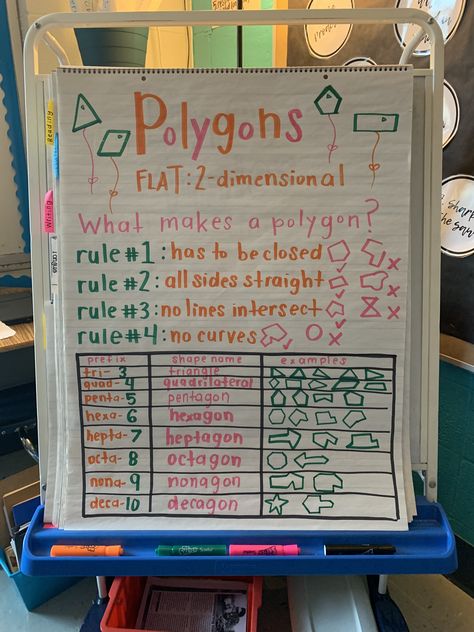 Polygons
FLAT: 2-dimensional
What makes a polygon?
rule #1: has to be closed
rule #2: all sides straight
rule #3: no lines intersect
rule #4: no curves
prefix shape name examples
tri- 3 triangle
quad- 4 quadrilateral
penta- 5 pentagon
hexa- 6 hexagon
hepta- 7 heptagon
octa- 8 octagon
nona- 9 nonagon
deca- 10 decagon
Reading
Writing